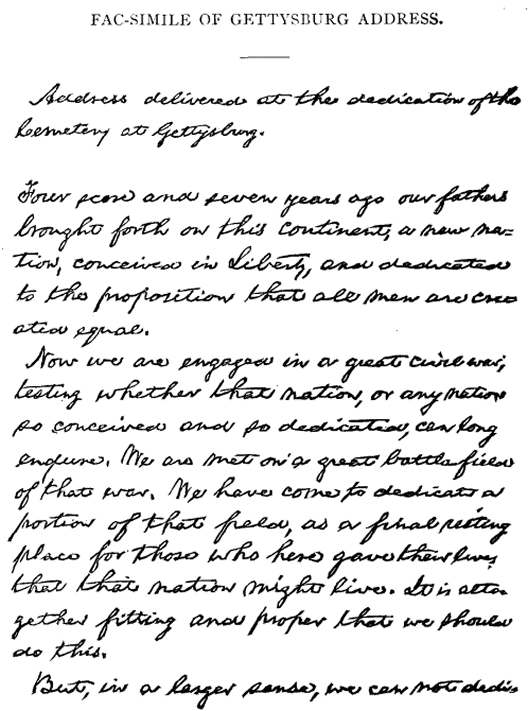 FAC-SIMILE OF GETTYSBURG ADDRESS.
Address delivered at the dedication of the
Cemetery at Gettysburg.
Four score and seven years ago our fathers
brought forth on this continent, a new na=
tion, conceived in Liberty, and dedicated
to the proposition that all men are cre
ated equal.
Now we are engaged in a great civil war,
testing whether that nation, or any nation
so conceived and so dedicated, can long
endure. We are met on a great battle-field
of that war. We have come to dedicate a
portion of that field, as a final resting
place for those who here gave their lives
that that nation might live. It is alto-
gether fitting and proper that we should
do this.
But, in a larger sense, we can not dedi-